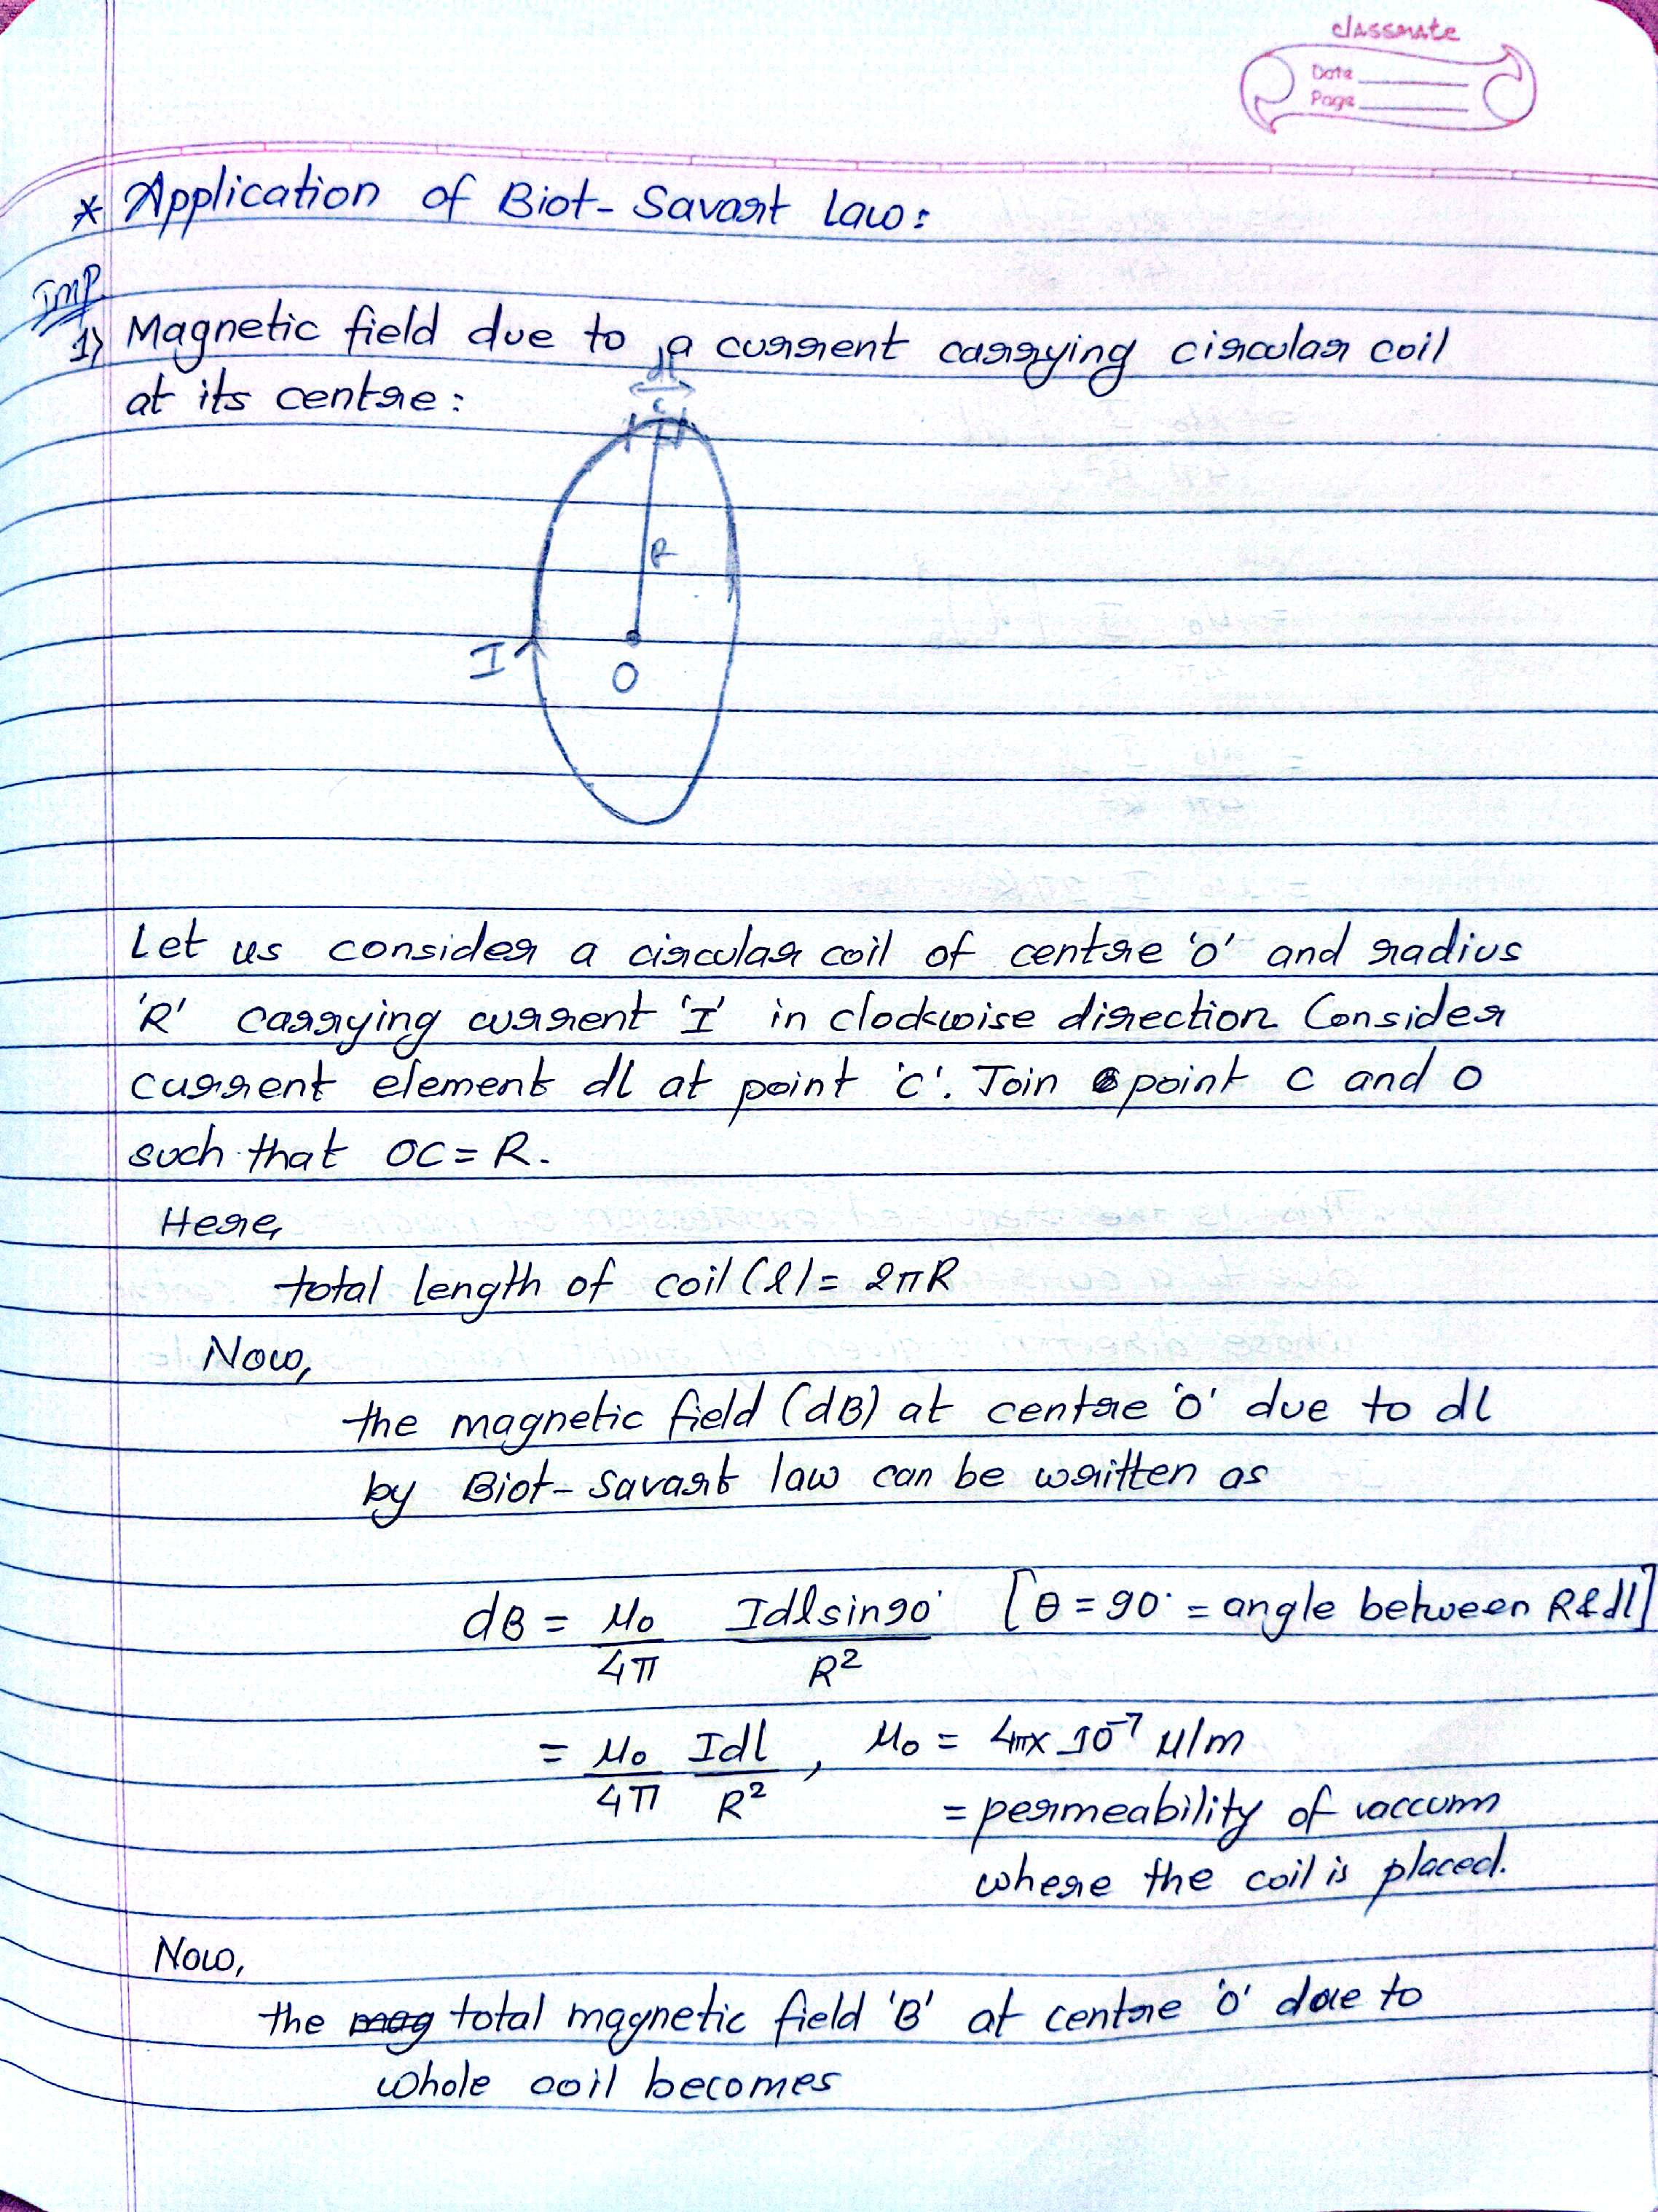 classmate
Date
Page
* Application of Biot-Savart Law:
Imp
1) Magnetic field due to a current carrying circular coil
at its centre:
dl
c
R
I
O
Let us consider a circular coil of centre 'O' and radius
'R' carrying current 'I' in clockwise direction. Consider
current element dl at point 'C'. Join point C and O
such that OC = R.
Here,
total length of coil (l) = 2πR
Now,
the magnetic field (dB) at centre 'O' due to dl
by Biot-Savart law can be written as
dB = μ₀/4π Idlsin90°/R² [θ = 90° = angle between R & dl]
= μ₀/4π Idl/R², μ₀ = 4π× 10⁻⁷ H/m
= permeability of vaccum
where the coil is placed.
Now,
the mag total magnetic field 'B' at centre 'O' due to
whole coil becomes